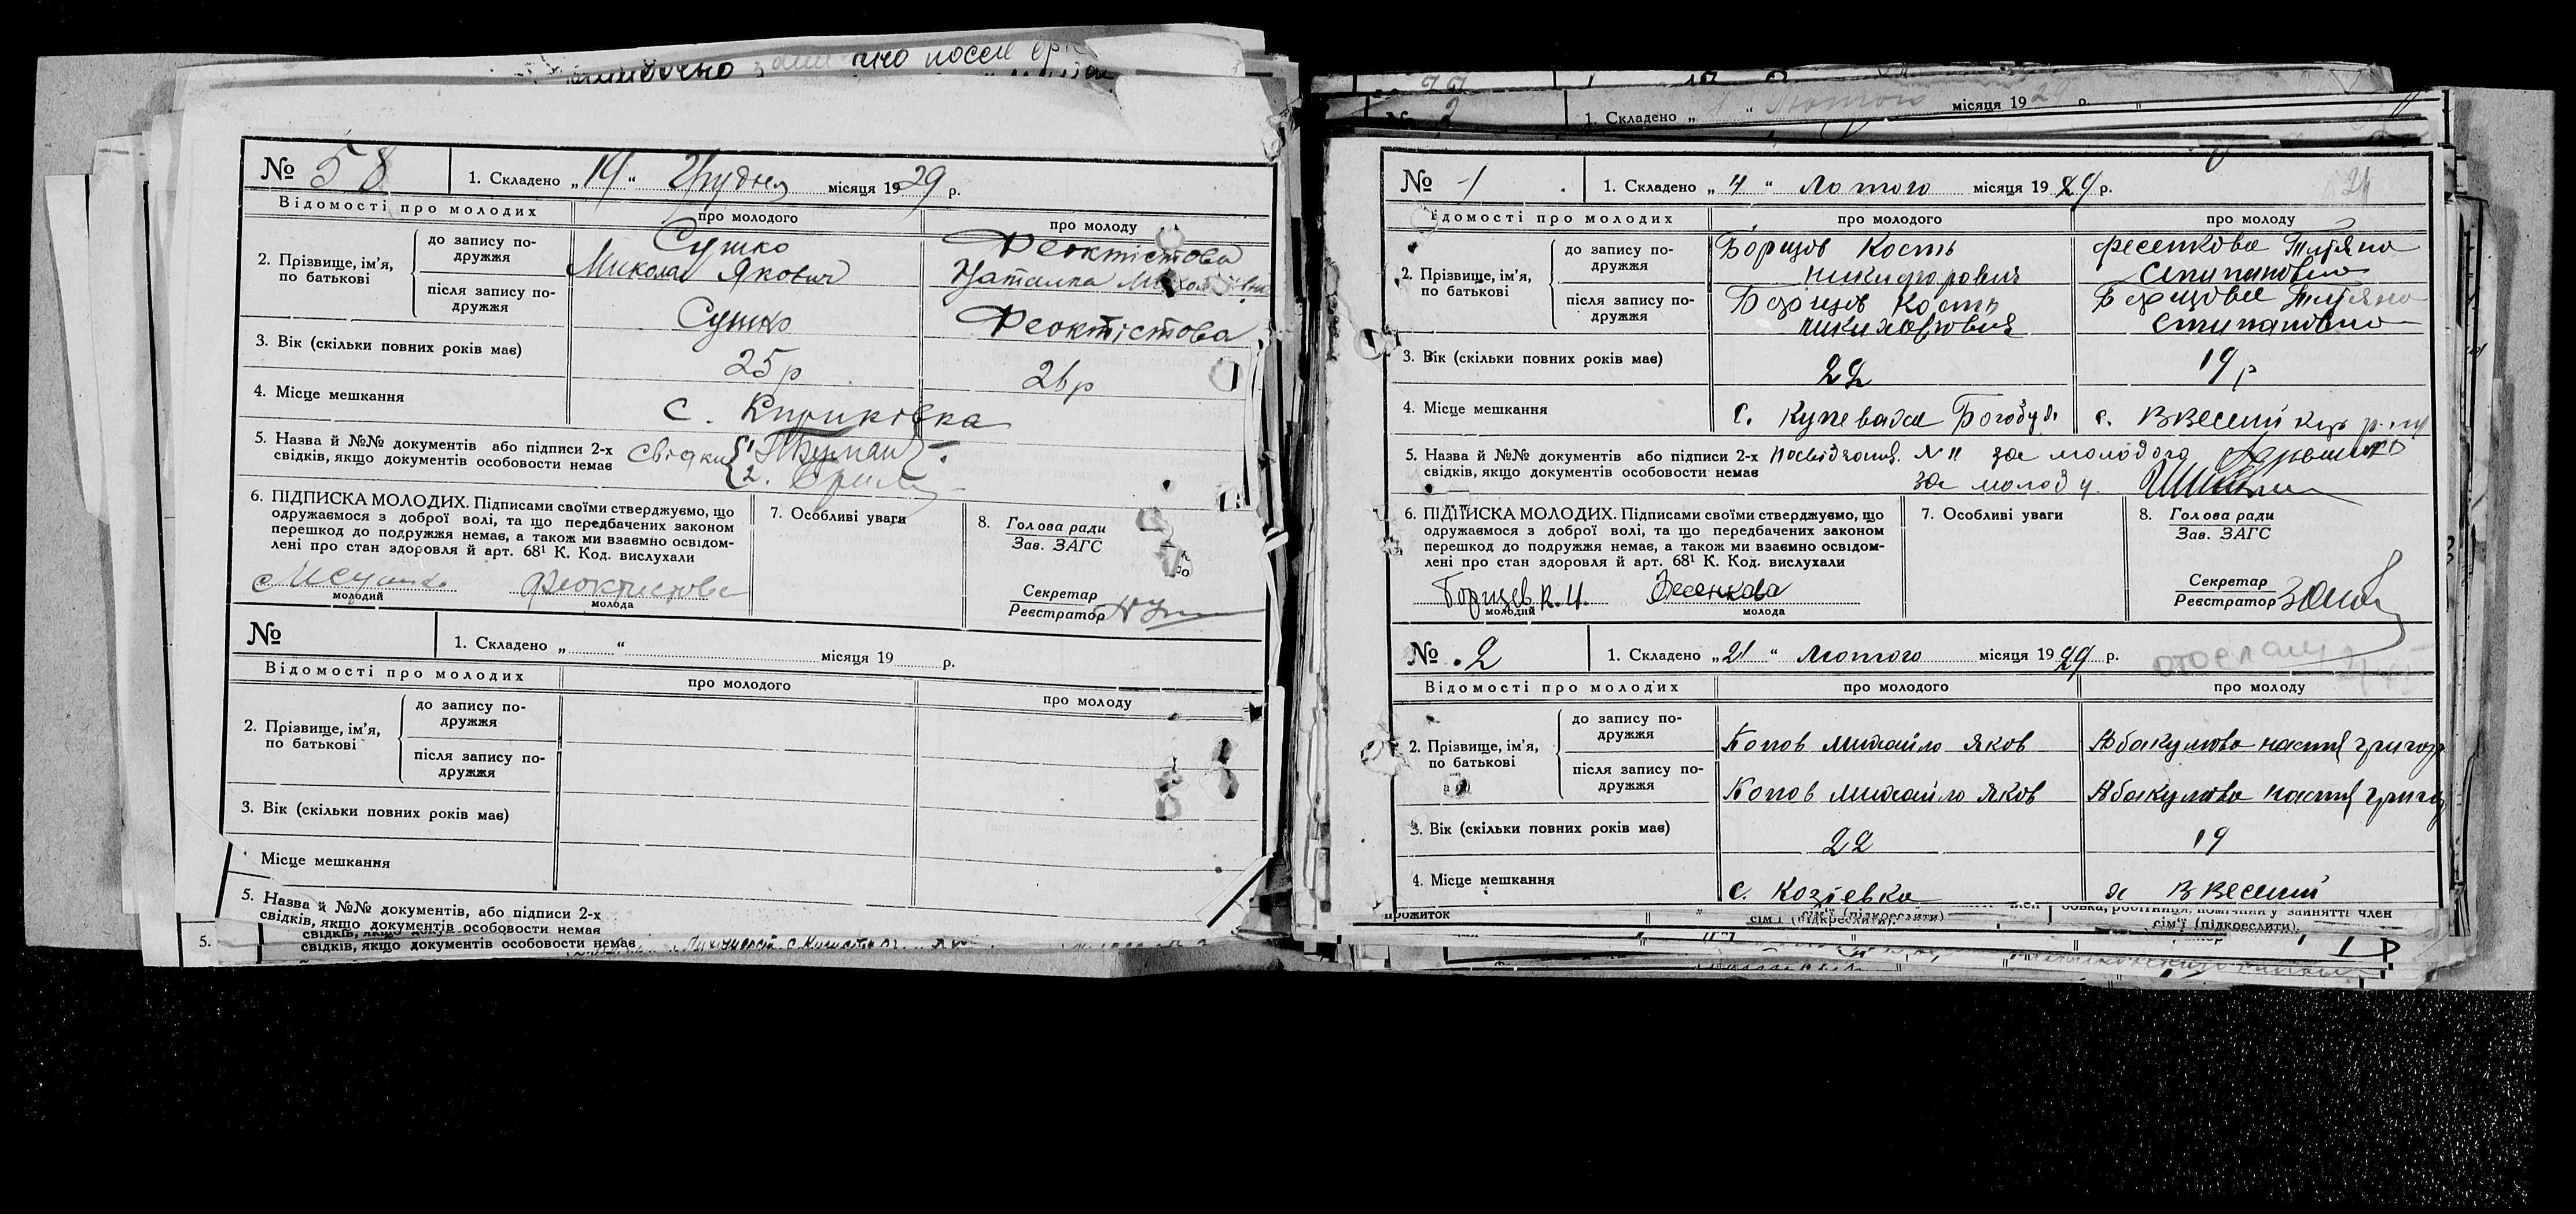 № 58
1. Складено „19“ Грудня місяця 1929 р.
Відомості про молодих
про молодого
про молоду
2. Прізвище, ім'я, по батькові
до запису подружжя
Сушко
Микола Якович
Феоктістова
Наталка
після запису подружжя
Сушко
Феоктістова
3. Вік (скільки повних років має)
25 р
26 р
4. Місце мешкання
с. Кириківка
5. Назва й №№ документів або підписи 2-х
свідків, якщо документів особовости немає
Свідки 1.
2.
6. ПІДПИСКА МОЛОДИХ. Підписами своїми стверджуємо, що
одружаємося з доброї волі, та що передбачених законом
перешкод до подружжя немає, а також ми взаємно освідом-
лені про стан здоров'я й арт. 68¹ К. Код. вислухали
молодий
Феоктистова
молода
7. Особливі уваги
8. Голова ради
Зав. ЗАГС
Секретар
Реєстратор
№
1. Складено „ “ місяця 19 р.
Відомості про молодих
про молодого
про молоду
2. Прізвище, ім'я, по батькові
до запису подружжя
після запису подружжя
3. Вік (скільки повних років має)
Місце мешкання
5. Назва й №№ документів, або підписи 2-х
свідків, якщо документів особовости немає
свідків, якщо документів особовости немає
5.
1. Складено „ “ Лютого місяця 1929 р.
№ 2
№ 1
1. Складено „4“ Лютого місяця 1929 р.
24
Відомості про молодих
про молодого
про молоду
2. Прізвище, ім'я, по батькові
до запису подружжя
Борщов Кость
Никифорович
Фесенкова Татяна
Степановна
після запису подружжя
Борщов Кость
Никифорович
Борщова Татяна
Степановна
3. Вік (скільки повних років має)
22
19 р
4. Місце мешкання
с. Купеваха Богодух
с. В Веселий
5. Назва й №№ документів або підписи 2-х
свідків, якщо документів особовости немає
Посвідчення № 11 за молодого
за молоду
6. ПІДПИСКА МОЛОДИХ. Підписами своїми стверджуємо, що
одружаємося з доброї волі, та що передбачених законом
перешкод до подружжя немає, а також ми взаємно освідом-
лені про стан здоров'я й арт. 68¹ К. Код. вислухали
Борщев К. Н.
молодий
Фесенкова
молода
7. Особливі уваги
8. Голова ради
Зав. ЗАГС
Секретар
Реєстратор
№ 2
1. Складено „21“ Лютого місяця 1929 р.
отослан
Відомості про молодих
про молодого
про молоду
2. Прізвище, ім'я, по батькові
до запису подружжя
Попов Михайло Яков
Абакумова Настя Григор
після запису подружжя
Попов Михайло Яков
Абакумова Настя Григор
3. Вік (скільки повних років має)
22
19
4. Місце мешкання
с. Козіевка
х В Веселий
прожиток
сім'ї (підкреслити)
сім'ї (підкреслити).